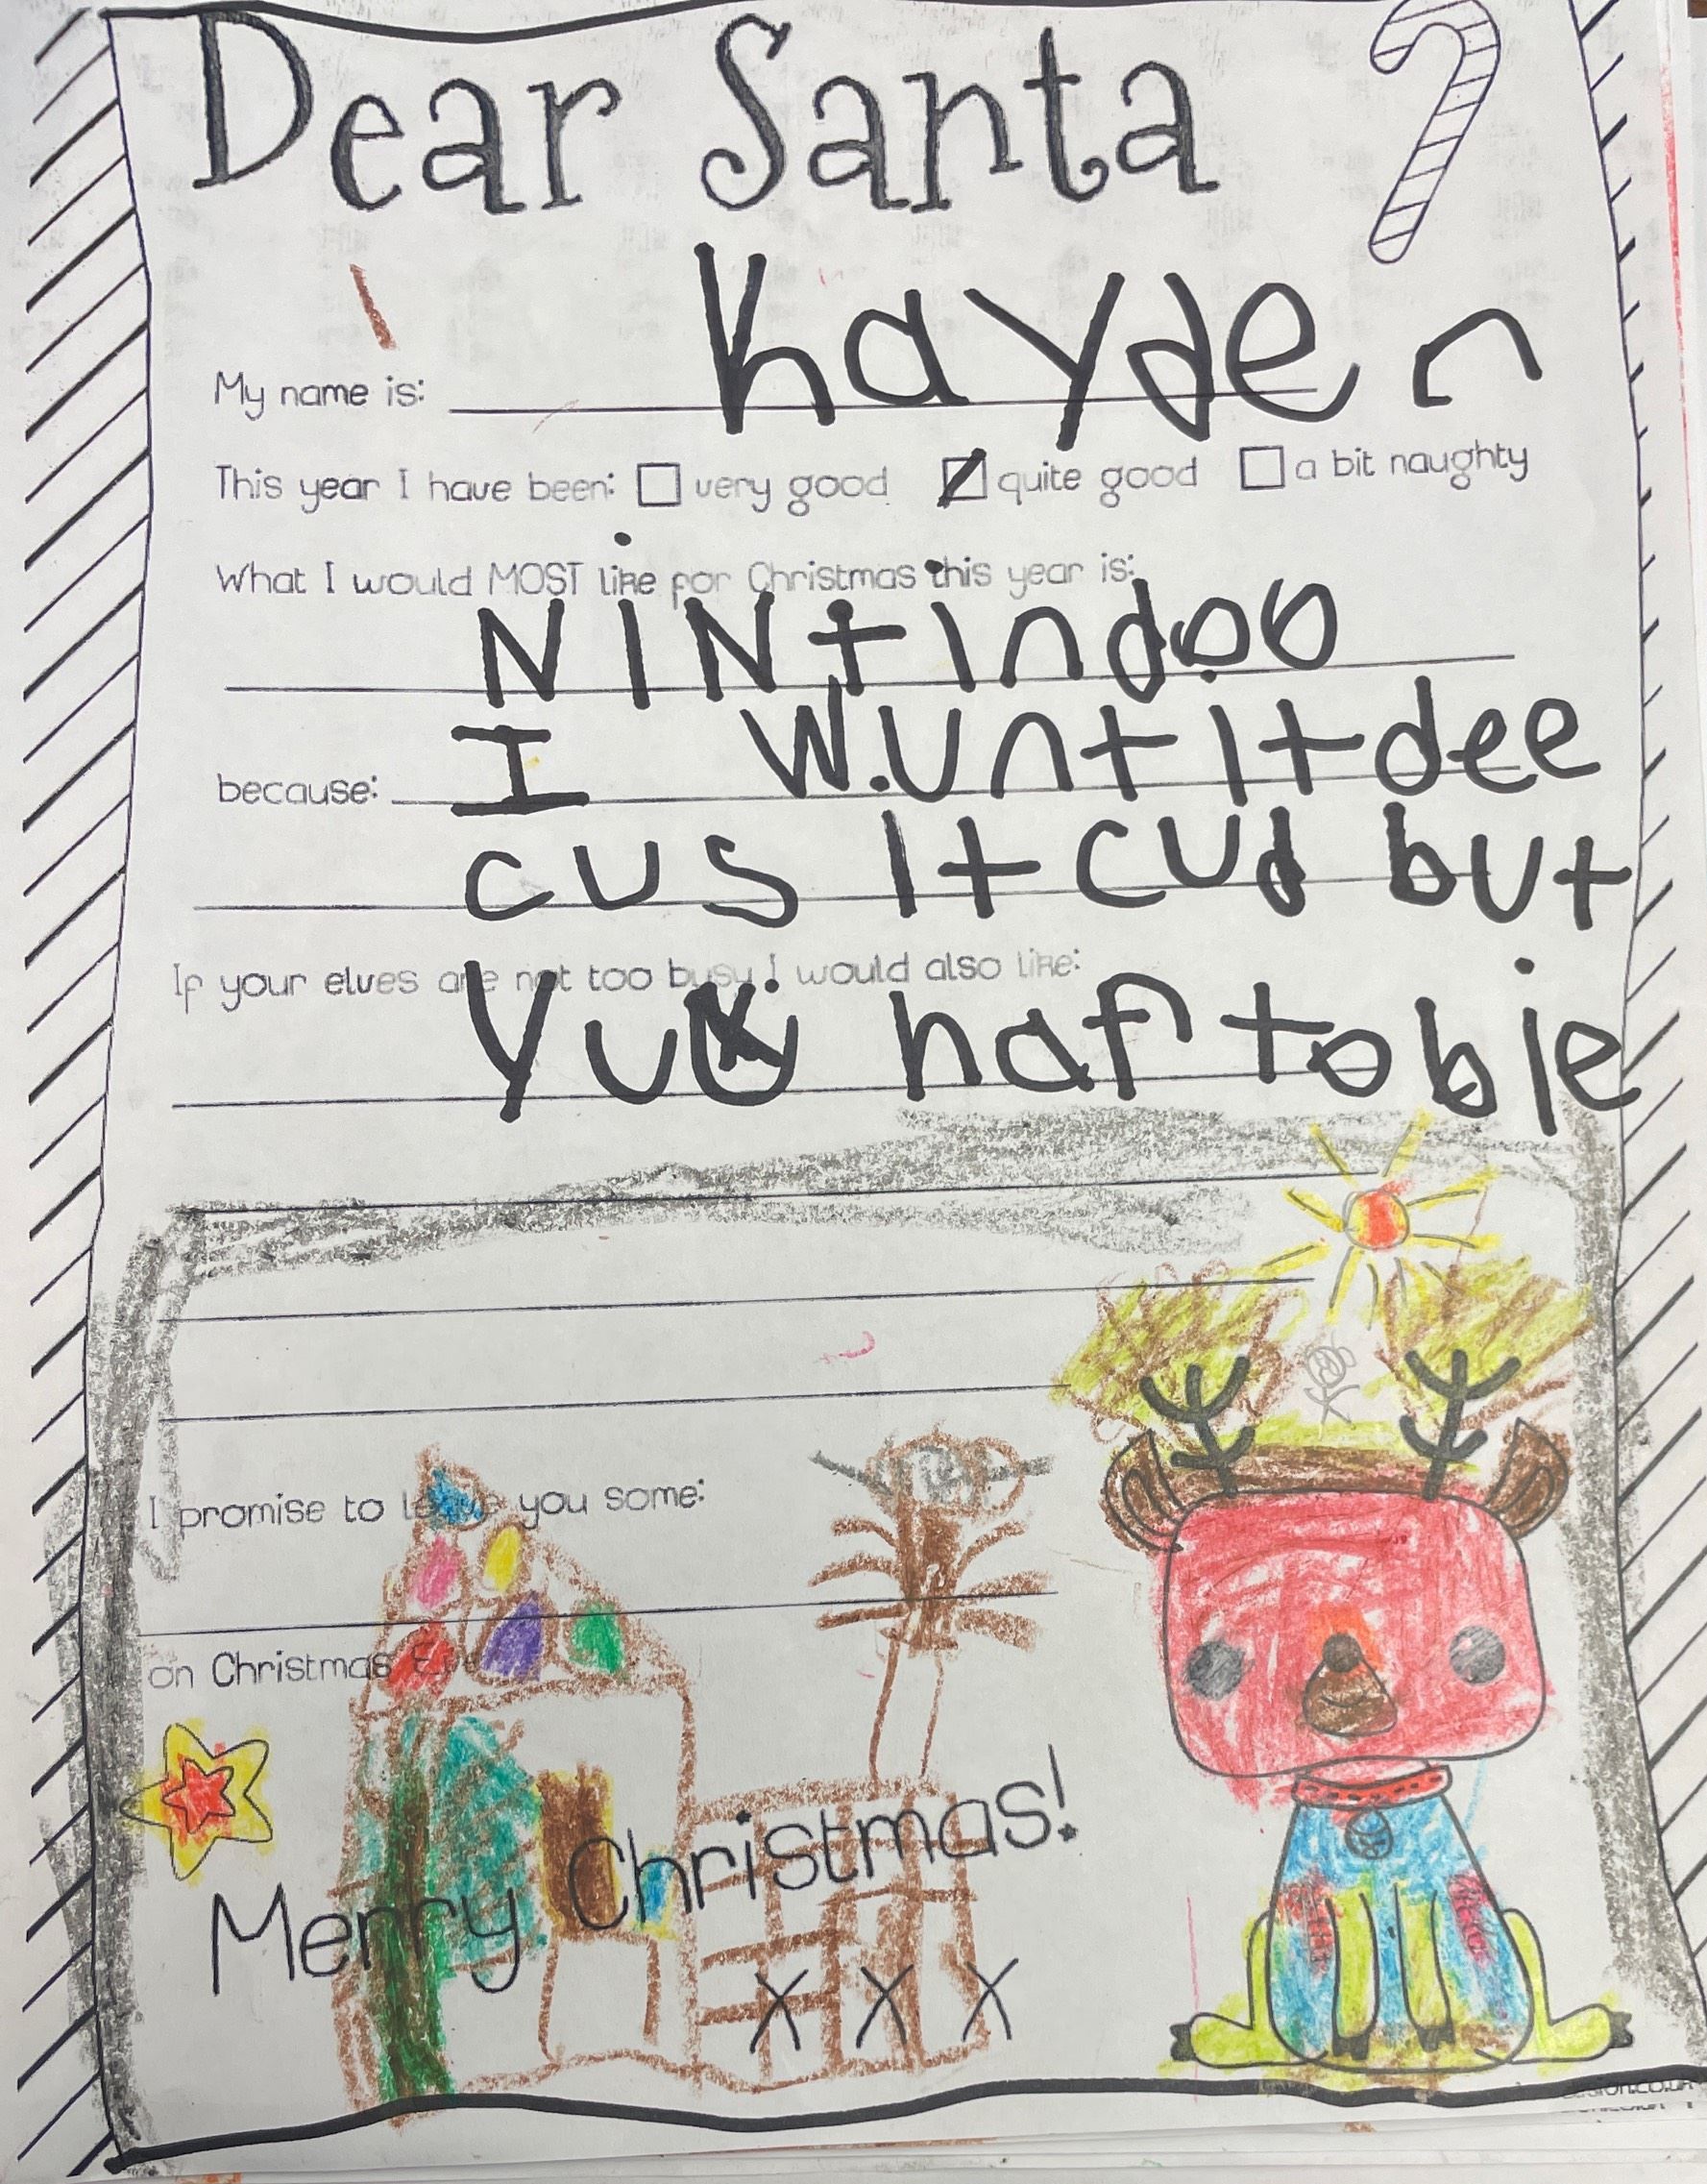 Dear Santa
My name is: Kayden
This year I have been: very good quite good a bit naughty
What I would MOST like for Christmas this year is:
NiNtindoo
because: I Wunt it dee
cus it cud but
If your elves are not too busy I would also like:
haf to bie
I promise to leave you some:
on Christmas Eve
Merry Christmas!
X X X